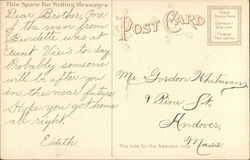 This Space For Writing Messages
POST CARD
Place Stamp Here
Domestic One cent
Foreign Two cents
Dear Brother, One
of the men from
Burdette was at
Aunt Vie's to day
Probably someone
will be after you
in the near future
Hope you got home
all right.
Edith.
Mr. Gordon Whitman,
9 Pine St.
Andover,
Mass.
This side for the Address only